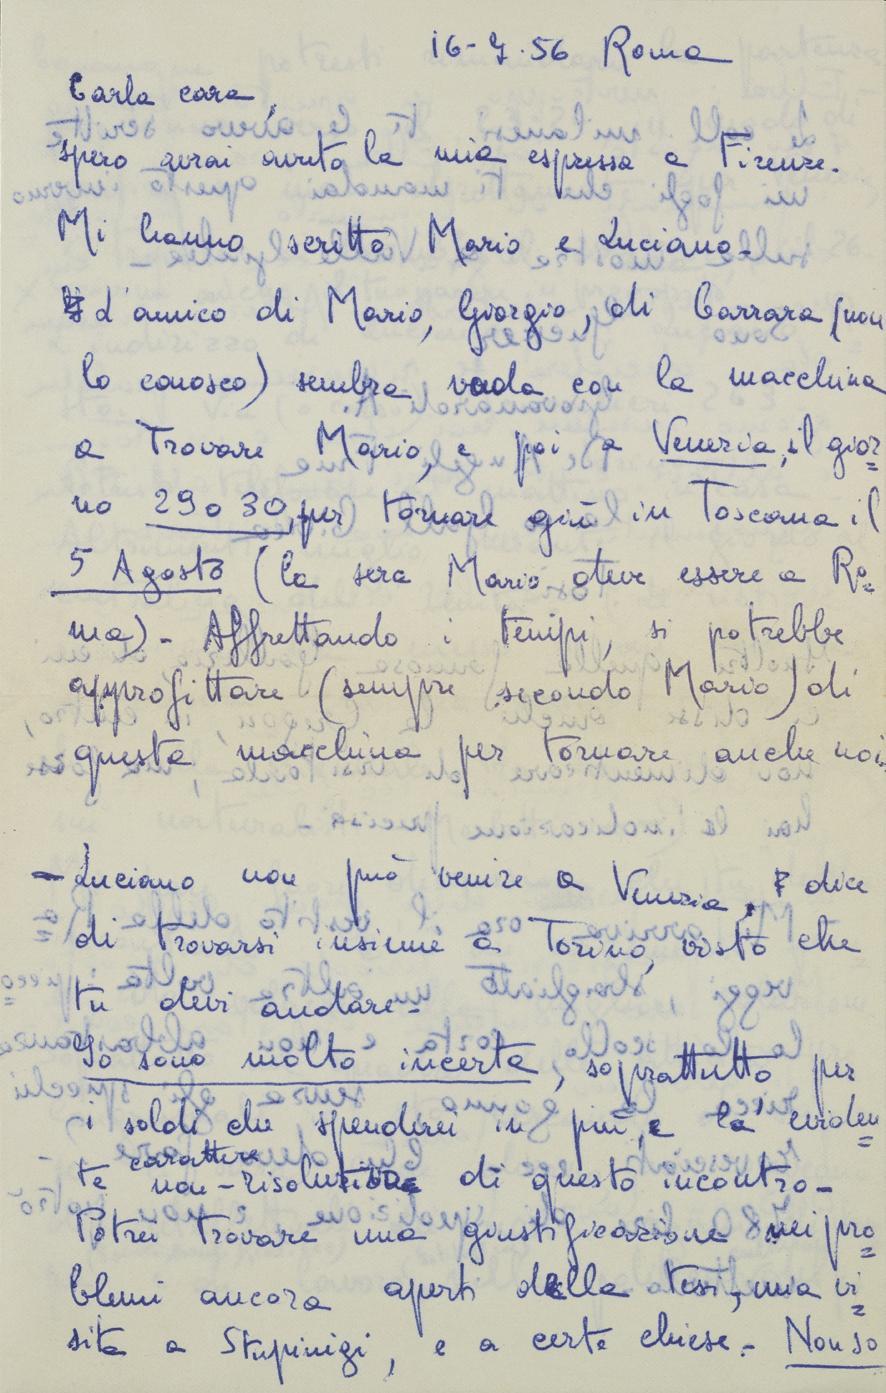 16-7.56 Roma
Carla cara,
spero avrai avuto la mia espressa a Firenze.
Mi hanno scritto Mario e Luciano.
d'amico di Mario, Giorgio, di Carrara (non
lo conosco) sembra vada con la macchina
a trovare Mario, e poi a Venezia, il gior=
no 29 o 30, per tornare giù in Toscana il
5 Agosto (la sera Mario deve essere a Ro=
ma) - Affrettando i tempi, si potrebbe
approfittare (sempre secondo Mario) di
questa macchina per tornare anche noi.
- Luciano non può venire a Venezia, dice
di trovarsi insieme a Torino, visto che
tu devi andare -
Io sono molto incerta, soprattutto per
i soldi che spenderei in più, e la eviden=
te carattere non-risolutivo di questo incontro -
Potrei trovare una giustificazione nei pro=
blemi ancora aperti della tesi, una vi=
sita a Stupinigi, e a certe chiese - Non so